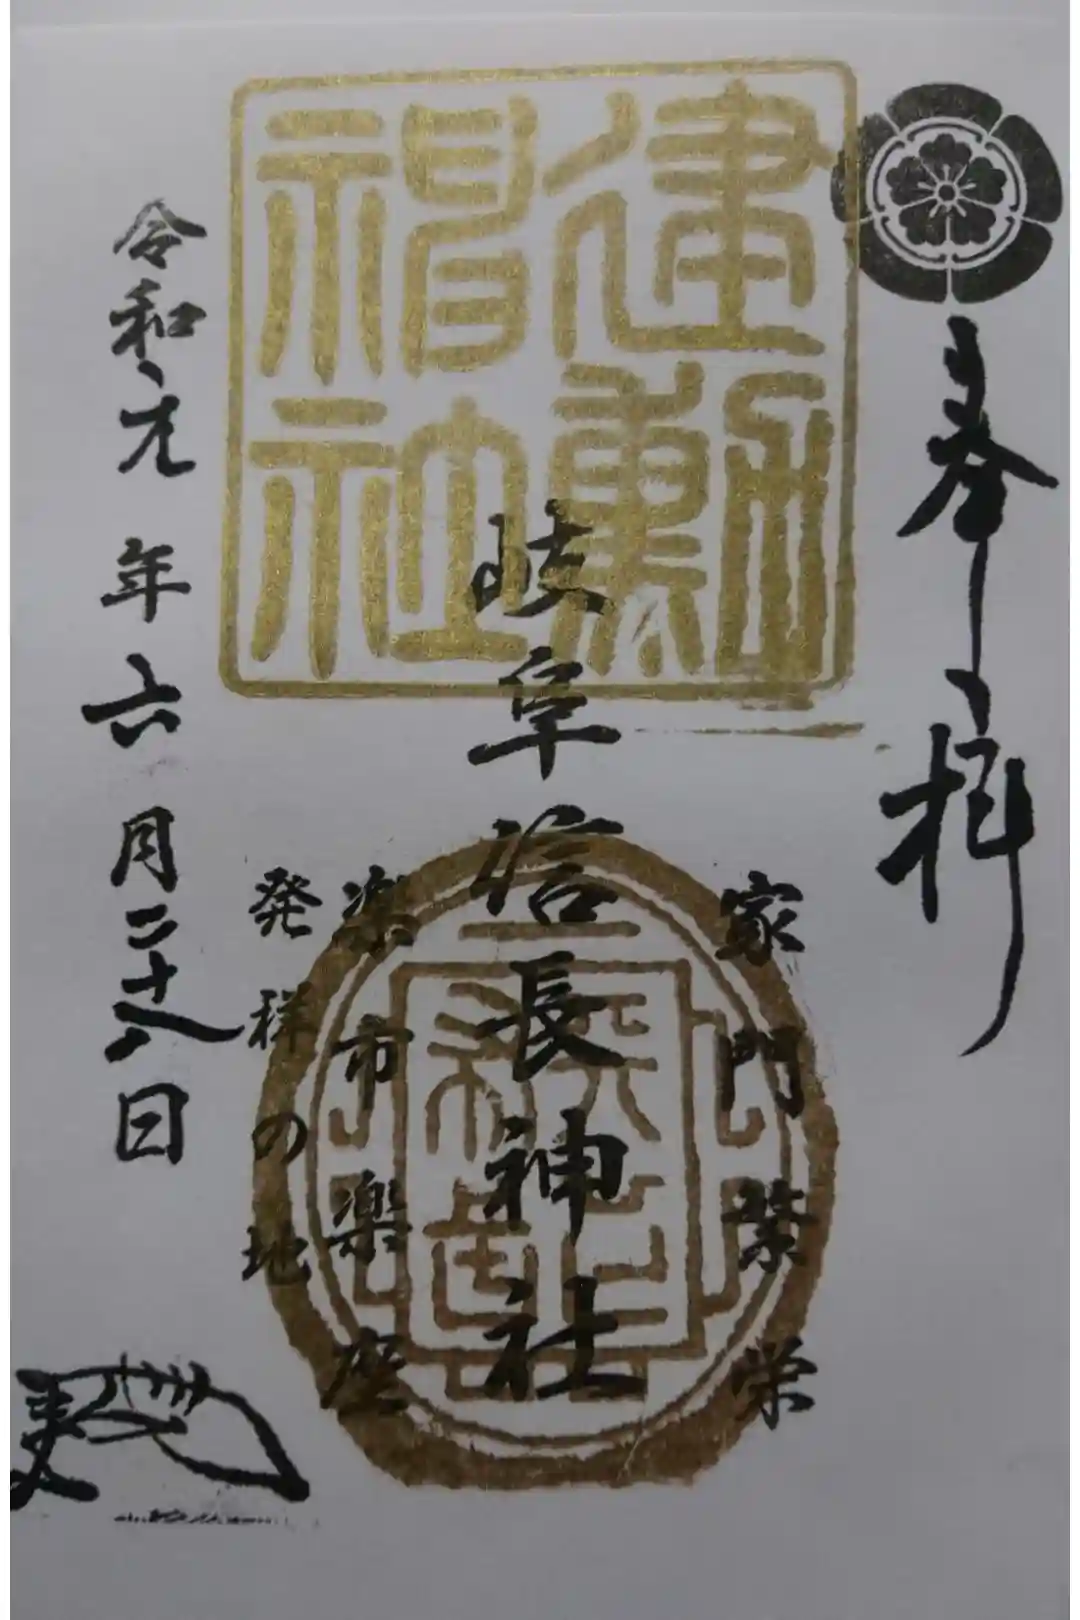 奉拝
建勲神社
家門繁栄
岐阜信長神社
楽市楽座
発祥の地
令和元年六月二十八日